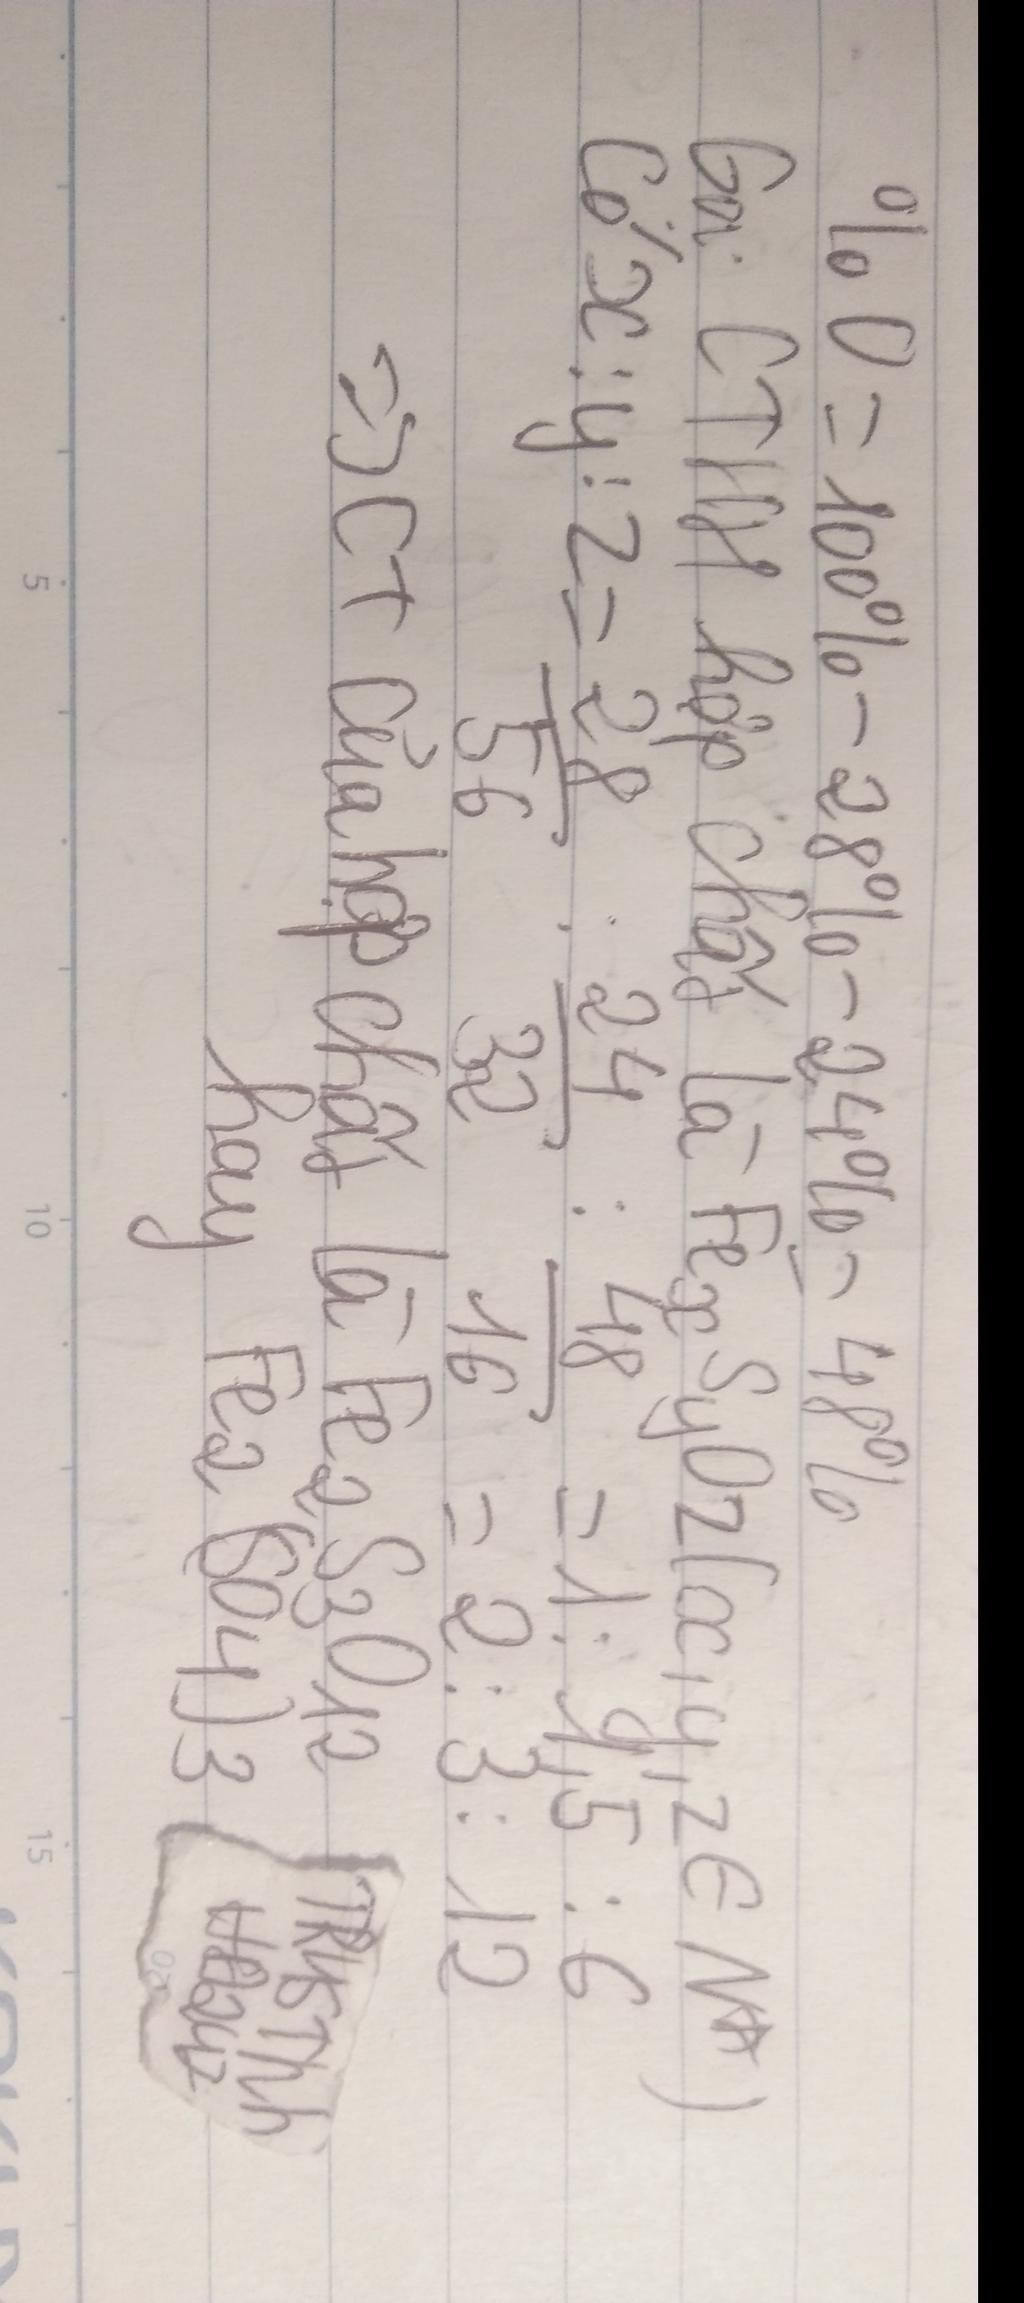 %O = 100% - 28% - 24% - 48%
Gọi CTHH hợp chất là FexSyOz(x,y,z ∈ N*)
Có x : y : z = 28/56 : 24/32 : 48/16 = 1 : 1,5 : 6
= 2 : 3 : 12
=> CT của hợp chất là Fe2S3O12
hay Fe2(SO4)3
5
10
15
20